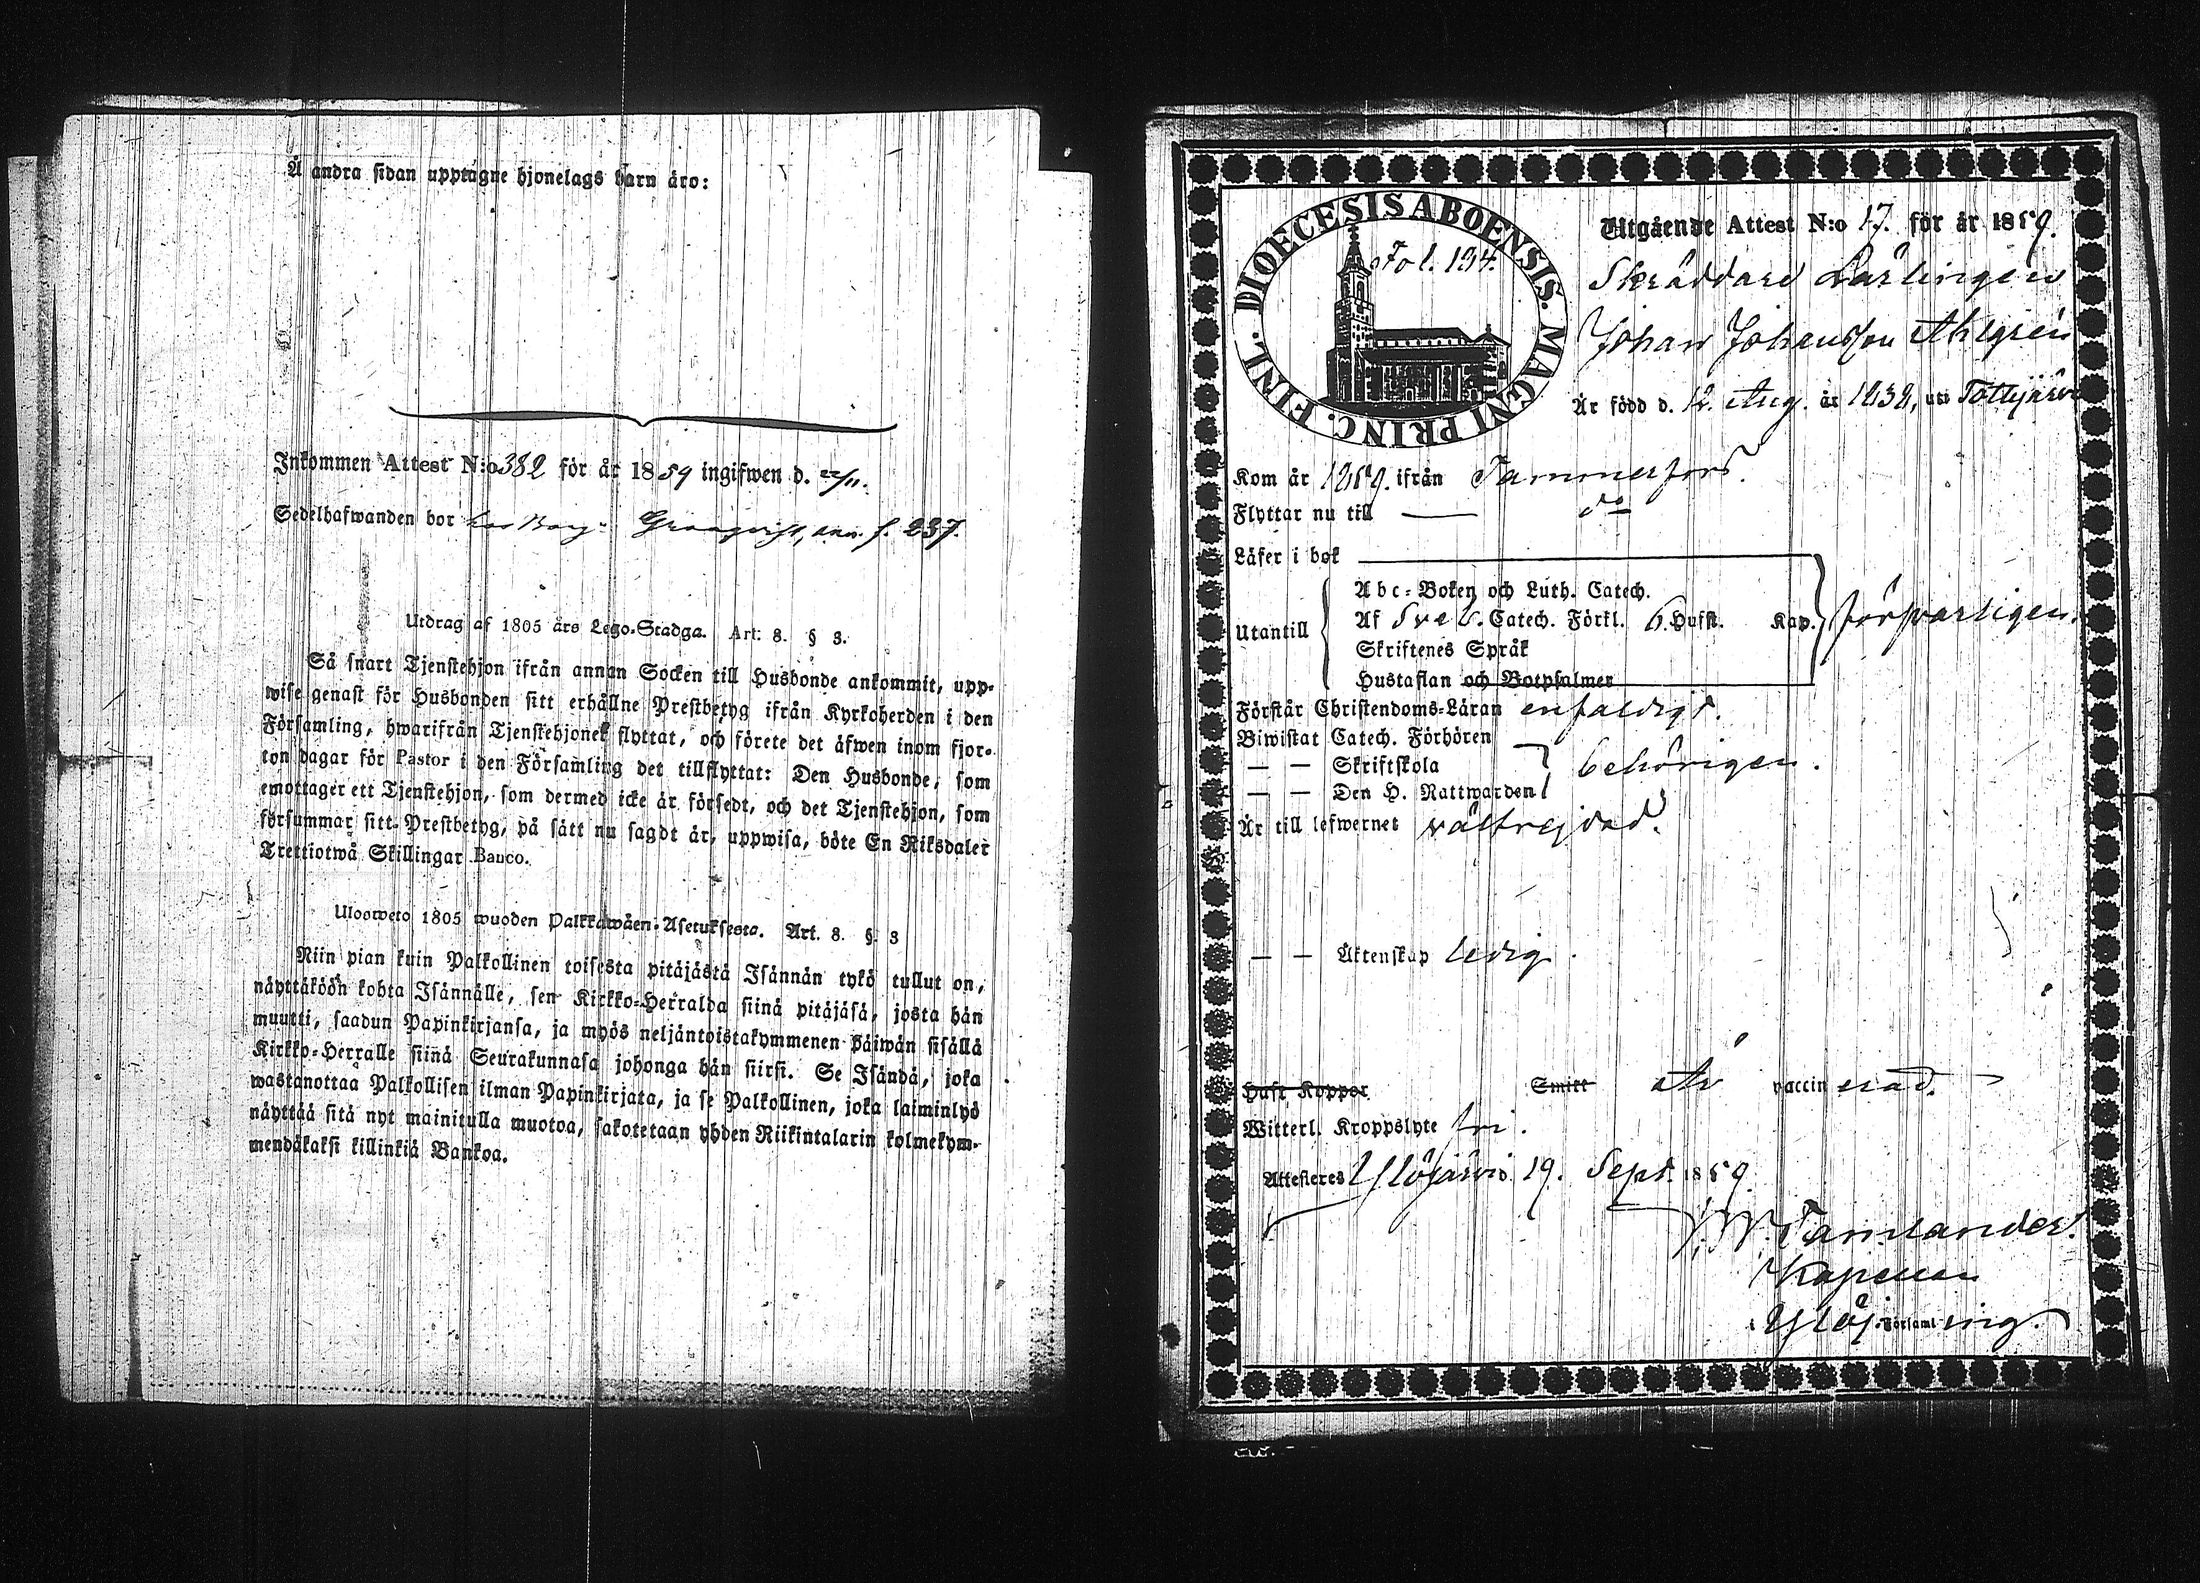 Å andra sidan upptagne hjonelags barn äro:
Inkommen Attest N:o 382 för år 1859 ingifwen d. 22/11.
Sedelhafwanden bor hos Borg. Granqvist, f. 237.
Utdrag af 1805 års Lego-Stadga. Art: 8. § 3.
Så snart Tjenstehjon ifrån annan Socken till Husbonde ankommit, upp-
wise genast för Husbonden sitt erhållne Prestbetyg ifrån Kyrkoherden i den
Församling, hwarifrån Tjenstehjonet flyttat, och förete det äfwen inom fjor-
ton dagar för Pastor i den Församling det tillflyttat: Den Husbonde, som
emottager ett Tjenstehjon, som dermed icke är försedt, och det Tjenstehjon, som
försummar sitt Prestbetyg, på sätt nu sagdt är, uppwisa, böte En Riksdaler
Trettiotwå Skillingar Banco.
Ulosweto 1805 wuoden Palkkawäen-Asetuksesta. Art. 8. §. 3
Niin pian kuin Palkollinen toisesta pitäjästä Isännän tykö tullut on,
näyttäköön kohta Isännälle, sen Kirkko-Herralda siinä pitäjäsä, josta hän
muutti, saadun Papinkirjansa, ja myös neljäntoistakymmenen päiwän sisällä
Kirkko-Herralle siinä Seurakunnasa johonga hän siirsi. Se Isändä, joka
wastanottaa Palkollisen ilman Papinkirjata, ja se Palkollinen, joka laiminlyö
näyttää sitä nyt mainitulla muotoa, sakotetaan yhden Riikintalarin kolmekym-
mendäkaksi killinkiä Bankoa.
DIOECESIS ABOENSIS. MAGNI PRINC. FINL.
Fol. 134.
Utgående Attest N:o 17. för år 1859.
Skräddare Lärlingen
Johan Johansson Ahlgrén
Är född d. 12. Aug. år 1838, uti Tottijärvi
Kom år 1859. ifrån Tammerfors.
Flyttar nu till — do
Läser i bok
Utantill
Abc-Boken och Luth. Catech.
Af Sveb. Catech. Förkl. 6. Hufst. Kap.
Skriftenes Språk
Hustaflan och Botpsalmer
försvarligen.
Förstår Christendoms-Läran enfaldigt.
Biwistat Catech. Förhören
— — Skriftskola
— — Den H. Nattwarden
behörigen.
Är till lefwernet välfrejdad.
— — Äktenskap ledig.
Haft Koppor Smitt Är vaccinerad.
Witterl. Kroppslyte fri.
Attesteres Ylöjärvi d. 19. Sept. 1859.
Tamlander.
Kapellan
i Ylöj. Församling.